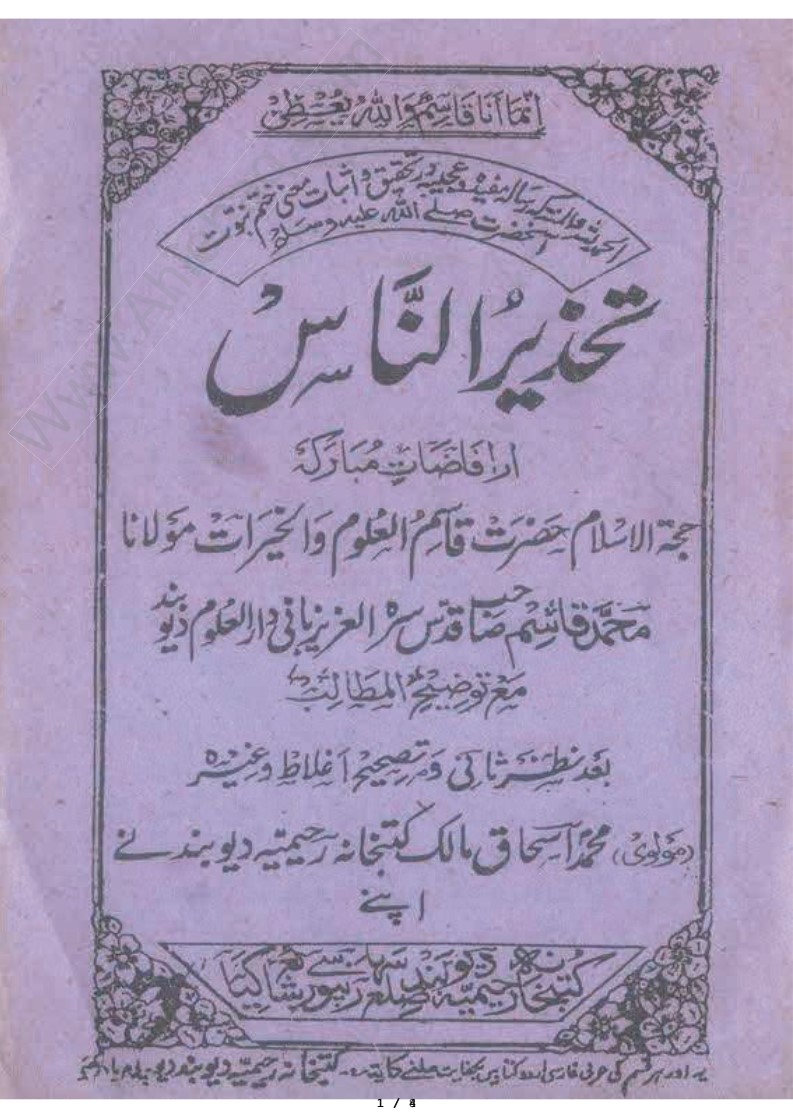 انّما انا قاسِمٌ واللہُ یُعطی
الحمد للہ والمنۃ کہ رسالہ مفیدہ و عجیبہ در تحقیق و اثبات معنی ختم نبوّت
آنحضرت صلے اللہ علیہ وسلم
تحذیرُ النَّاسْ
از افاضات مُبارکہ
حجۃ الاسلام حضرت قاسم العلوم والخیرات مولانا
محمّد قاسم صاحب قدّس سرّہ العزیز بانی دار العلوم دیوبند
مع توضیح المطالب
بعد نظر ثانی و تصحیح اغلاط وغیرہ
(مولوی) محمد اسحاق مالک کتبخانہ رحیمیہ دیوبند نے
اپنے
کتبخانہ رحیمیہ دیوبند ضلع سہارنپور سے شائع کیا
یہ اور ہر قسم کی عربی فارسی اردو کتابیں بکفایت ملنے کا پتہ:۔ کتبخانہ رحیمیہ دیوبند
1 / 4